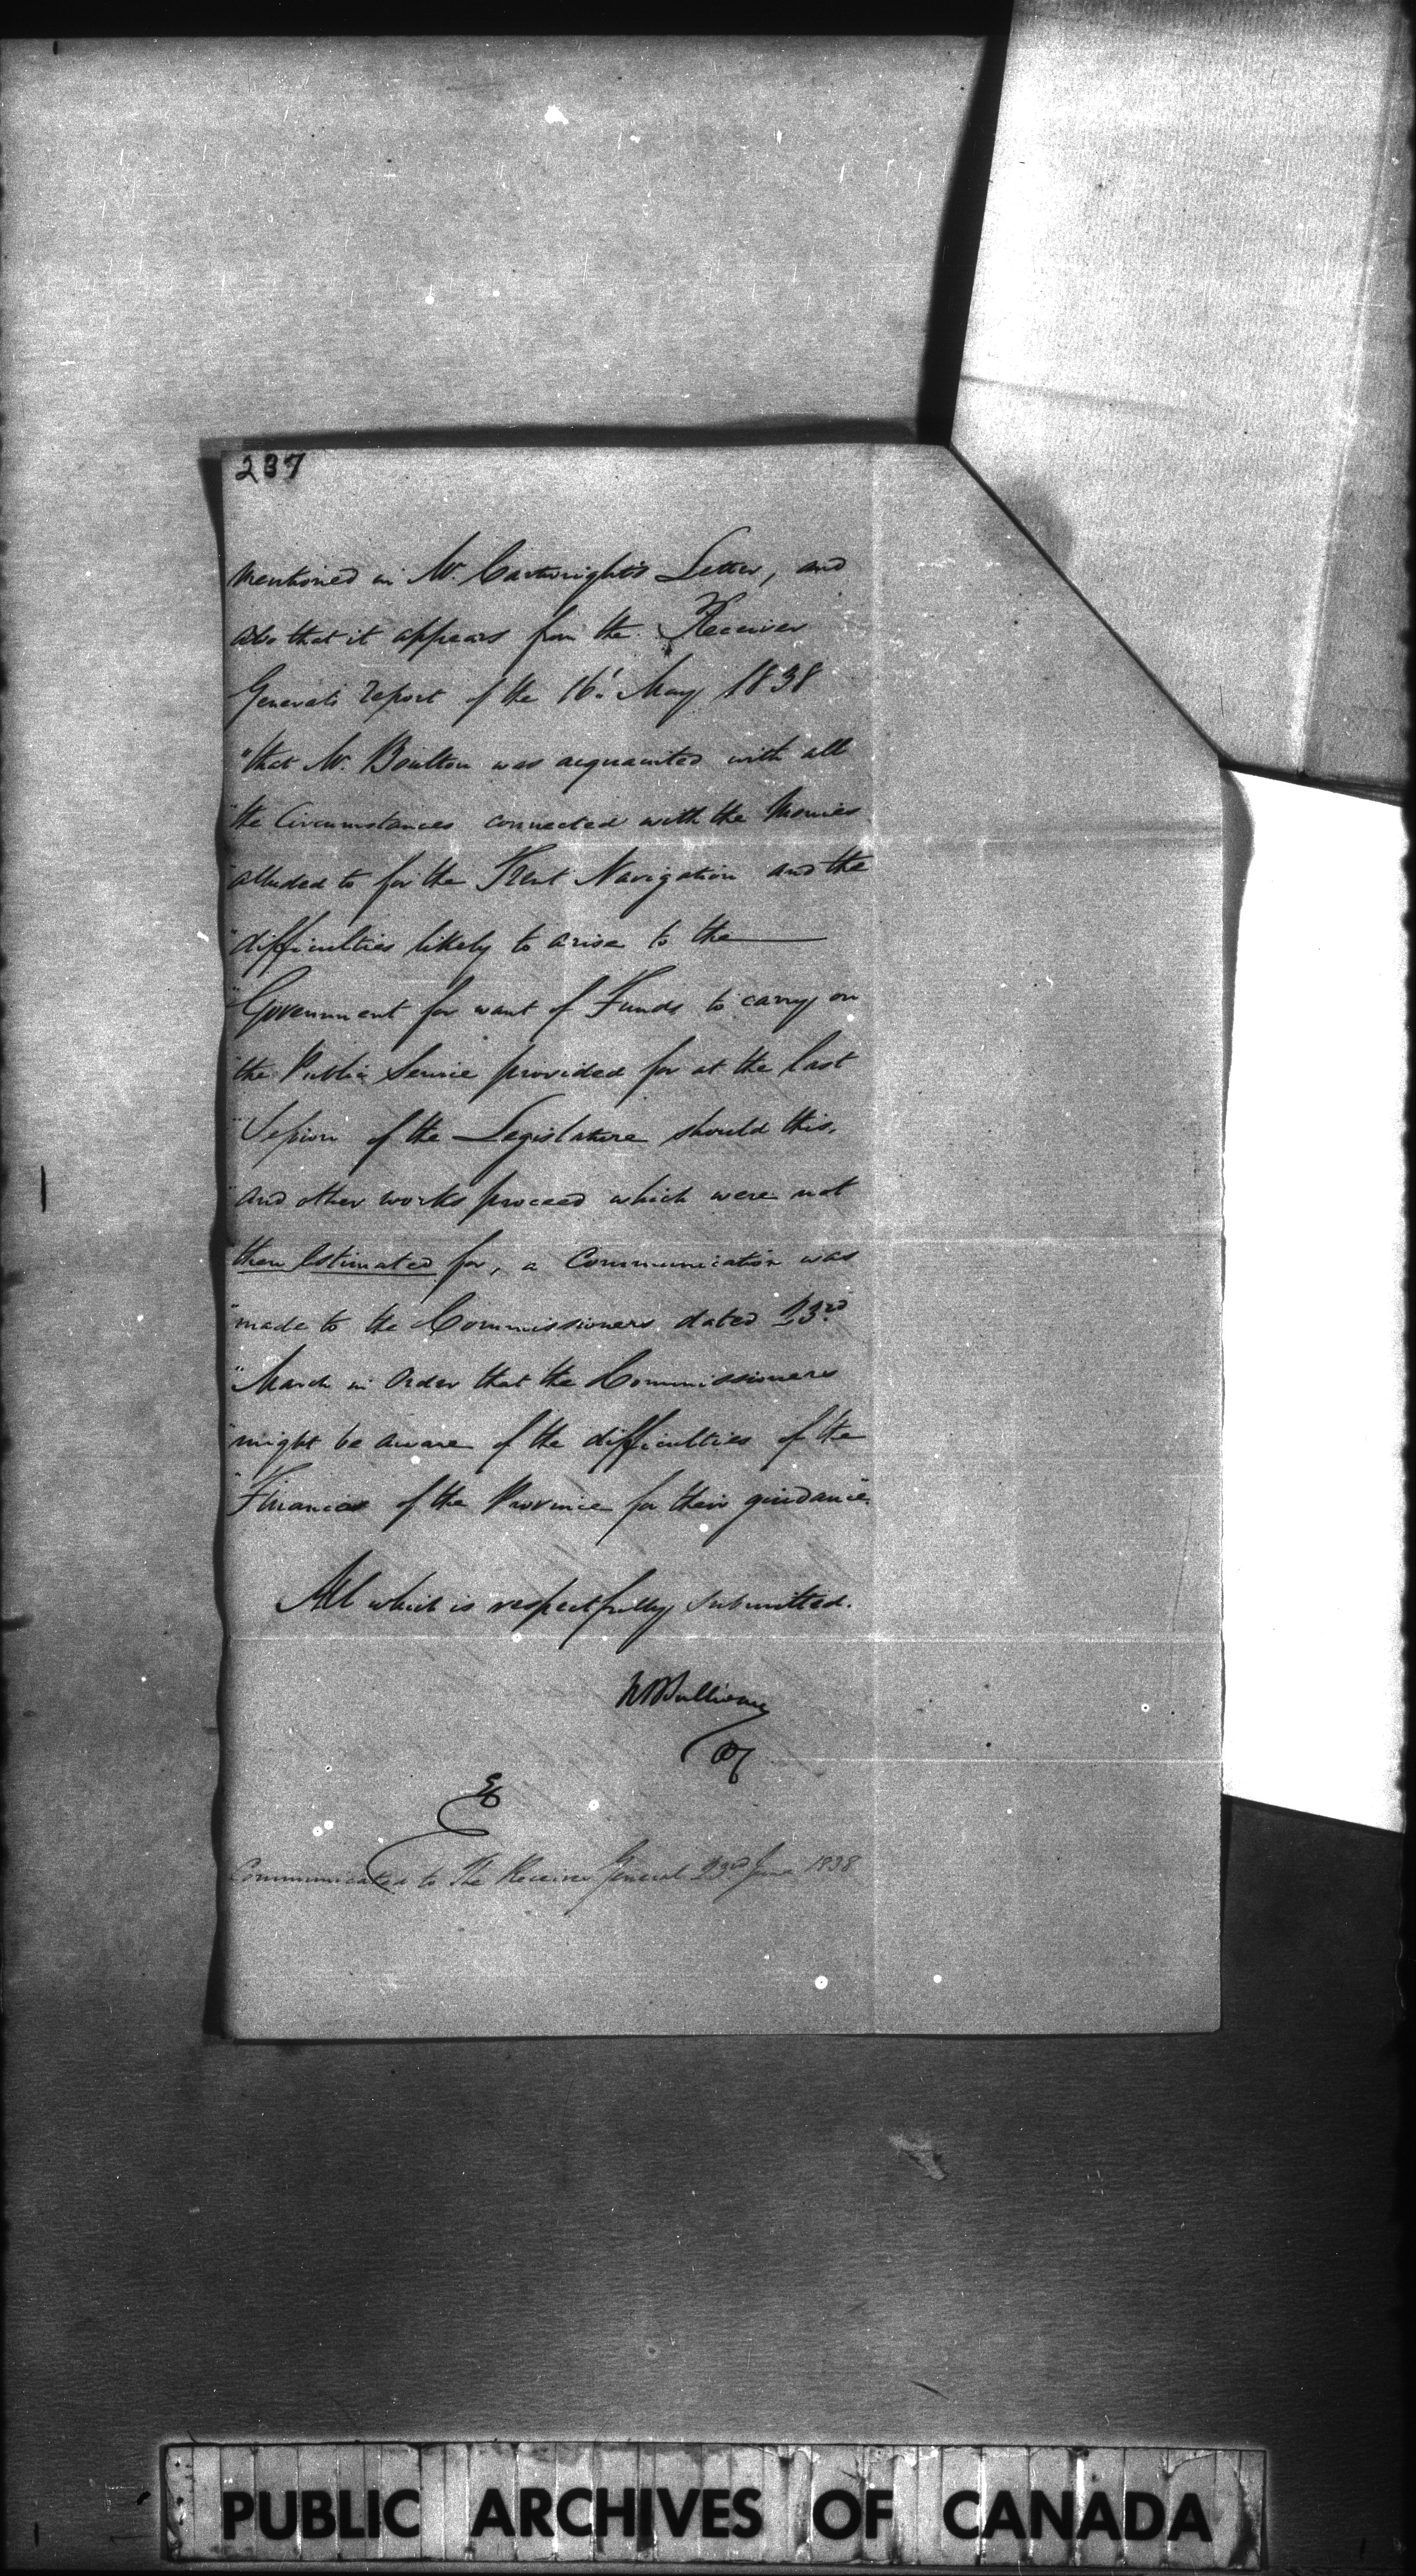 237
mentioned in Mr. Cartwright's Letter, and
also that it appears from the Receiver
General's Report of the 16t. May 1838
"that Mr. Boulton was acquainted with all
"the Circumstances connected with the Monies
"alluded to for the Trent Navigation and the
"difficulties likely to arise to the
"Government for want of Funds to carry on
"the Public Service provided for at the last
"Session of the Legislature should this,
"and other works proceed which were not
"then Estimated for, a Communication was
"made to the Commissioners dated 23rd.
"March in Order that the Commissioners
"might be aware of the difficulties of the
"Finances of the Province for their guidance".
All which is respectfully submitted.
RBSullivan
Communicated to The Receiver General 23rd June 1838
PUBLIC ARCHIVES OF CANADA